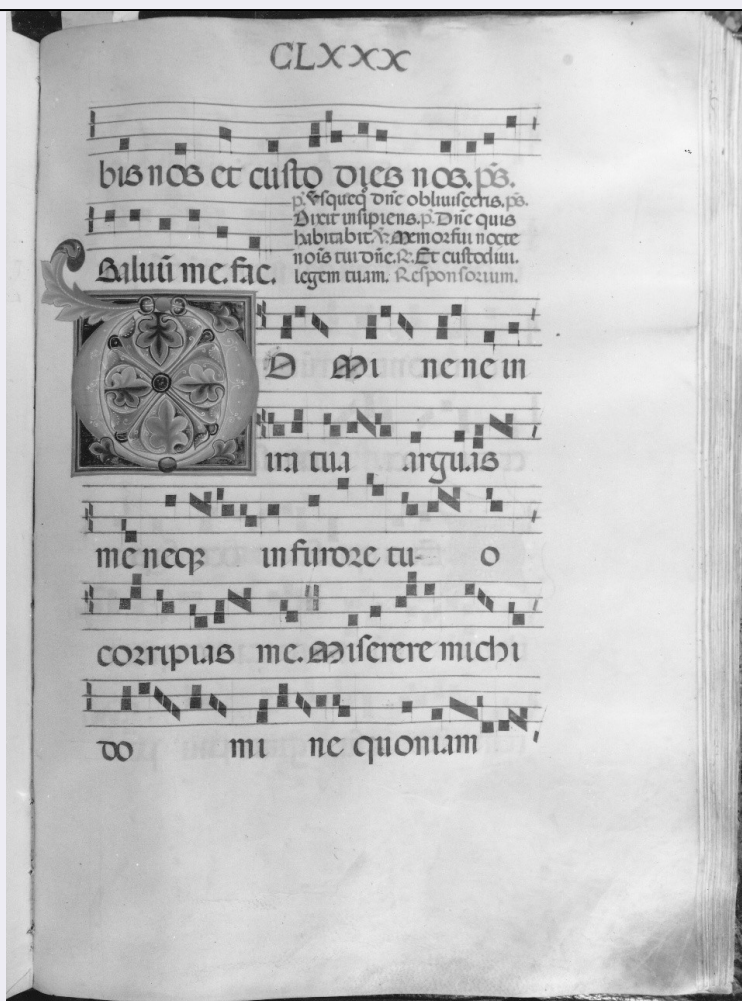 CLXXX
bis nos et custo dies nos. p̄s.
p̄. Vsqueq̄ dn̄e obliuisceris. p̄s.
Dixit insipiens. p̄. Dn̄e quis
habitabit. V. Memor fui nocte
nois tui dn̄e. R. Et custodiui.
Saluū me. fac.
legem tuam. Responsorium.
D Mi ne ne in
ira tua arguas
me neq₃ in furore tu- o
corripias me. Miserere michi
do mi ne quoniam